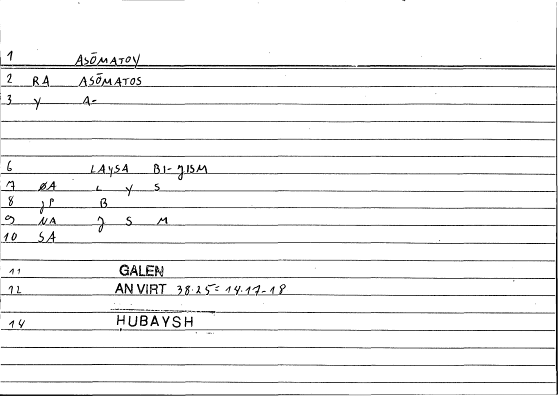 1 ASŌMATOY
2 RA ASŌMATOS
3 Y A-
6 LAYSA BI-JISM
7 ØA L Y S
8 JP B
9 NA J S M
10 SA
11 GALEN
12 AN VIRT 38.25 = 14.17-18
14 HUBAYSH